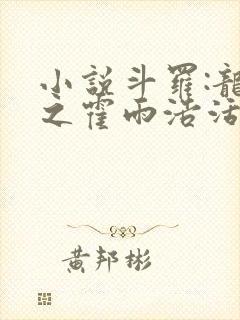 小說斗羅:龍
之霍雨浩活
黃邦彬